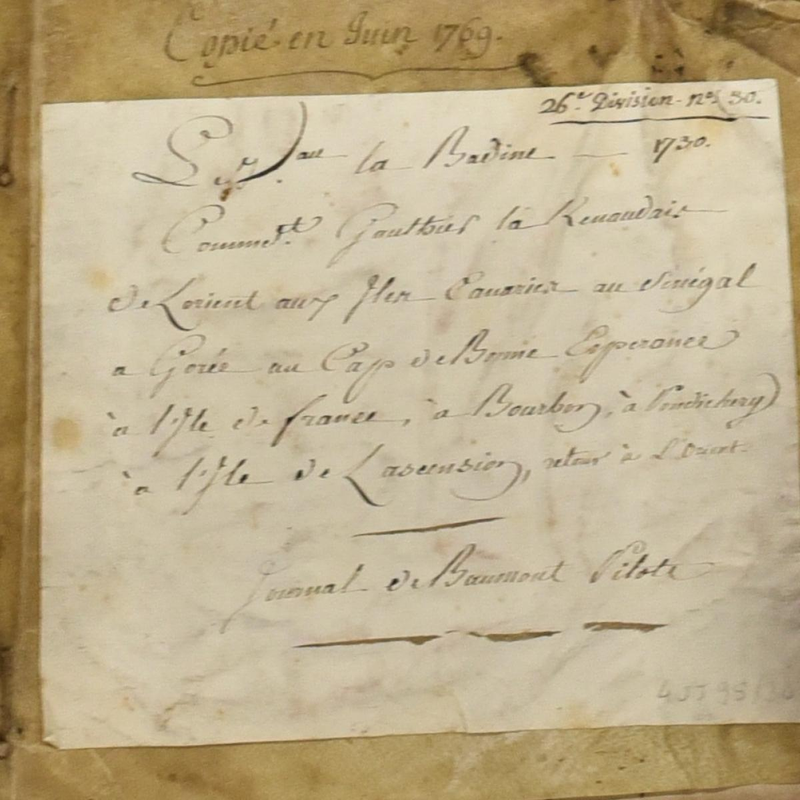 Copié en Juin 1769.
26e. Division - no. 30.
Le Vau la Badine — 1730.
Commdt. Gauthier la Renaudais
de Lorient aux Iles Canaries au Sénégal
a Gorée au Cap de Bonne Esperance
à l'Ile de france, à Bourbon, à Pondichery
à l'Ile de Lascension, retour à L'Orient.
Journal de Baumont Pilote
4JJ 98/30